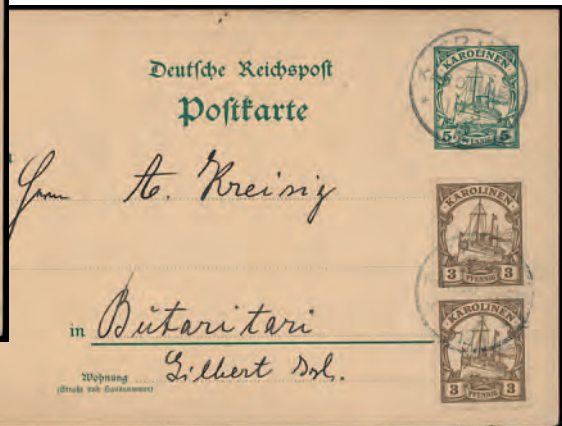 Deutsche Reichspost
Postkarte
KAROLINEN
5 PFENNIG 5
Herrn A. Kreisig
KAROLINEN
3 PFENNIG 3
in Bütaritari
KAROLINEN
3 PFENNIG 3
Gilbert Isl.
Wohnung
(Straße und Hausnummer)